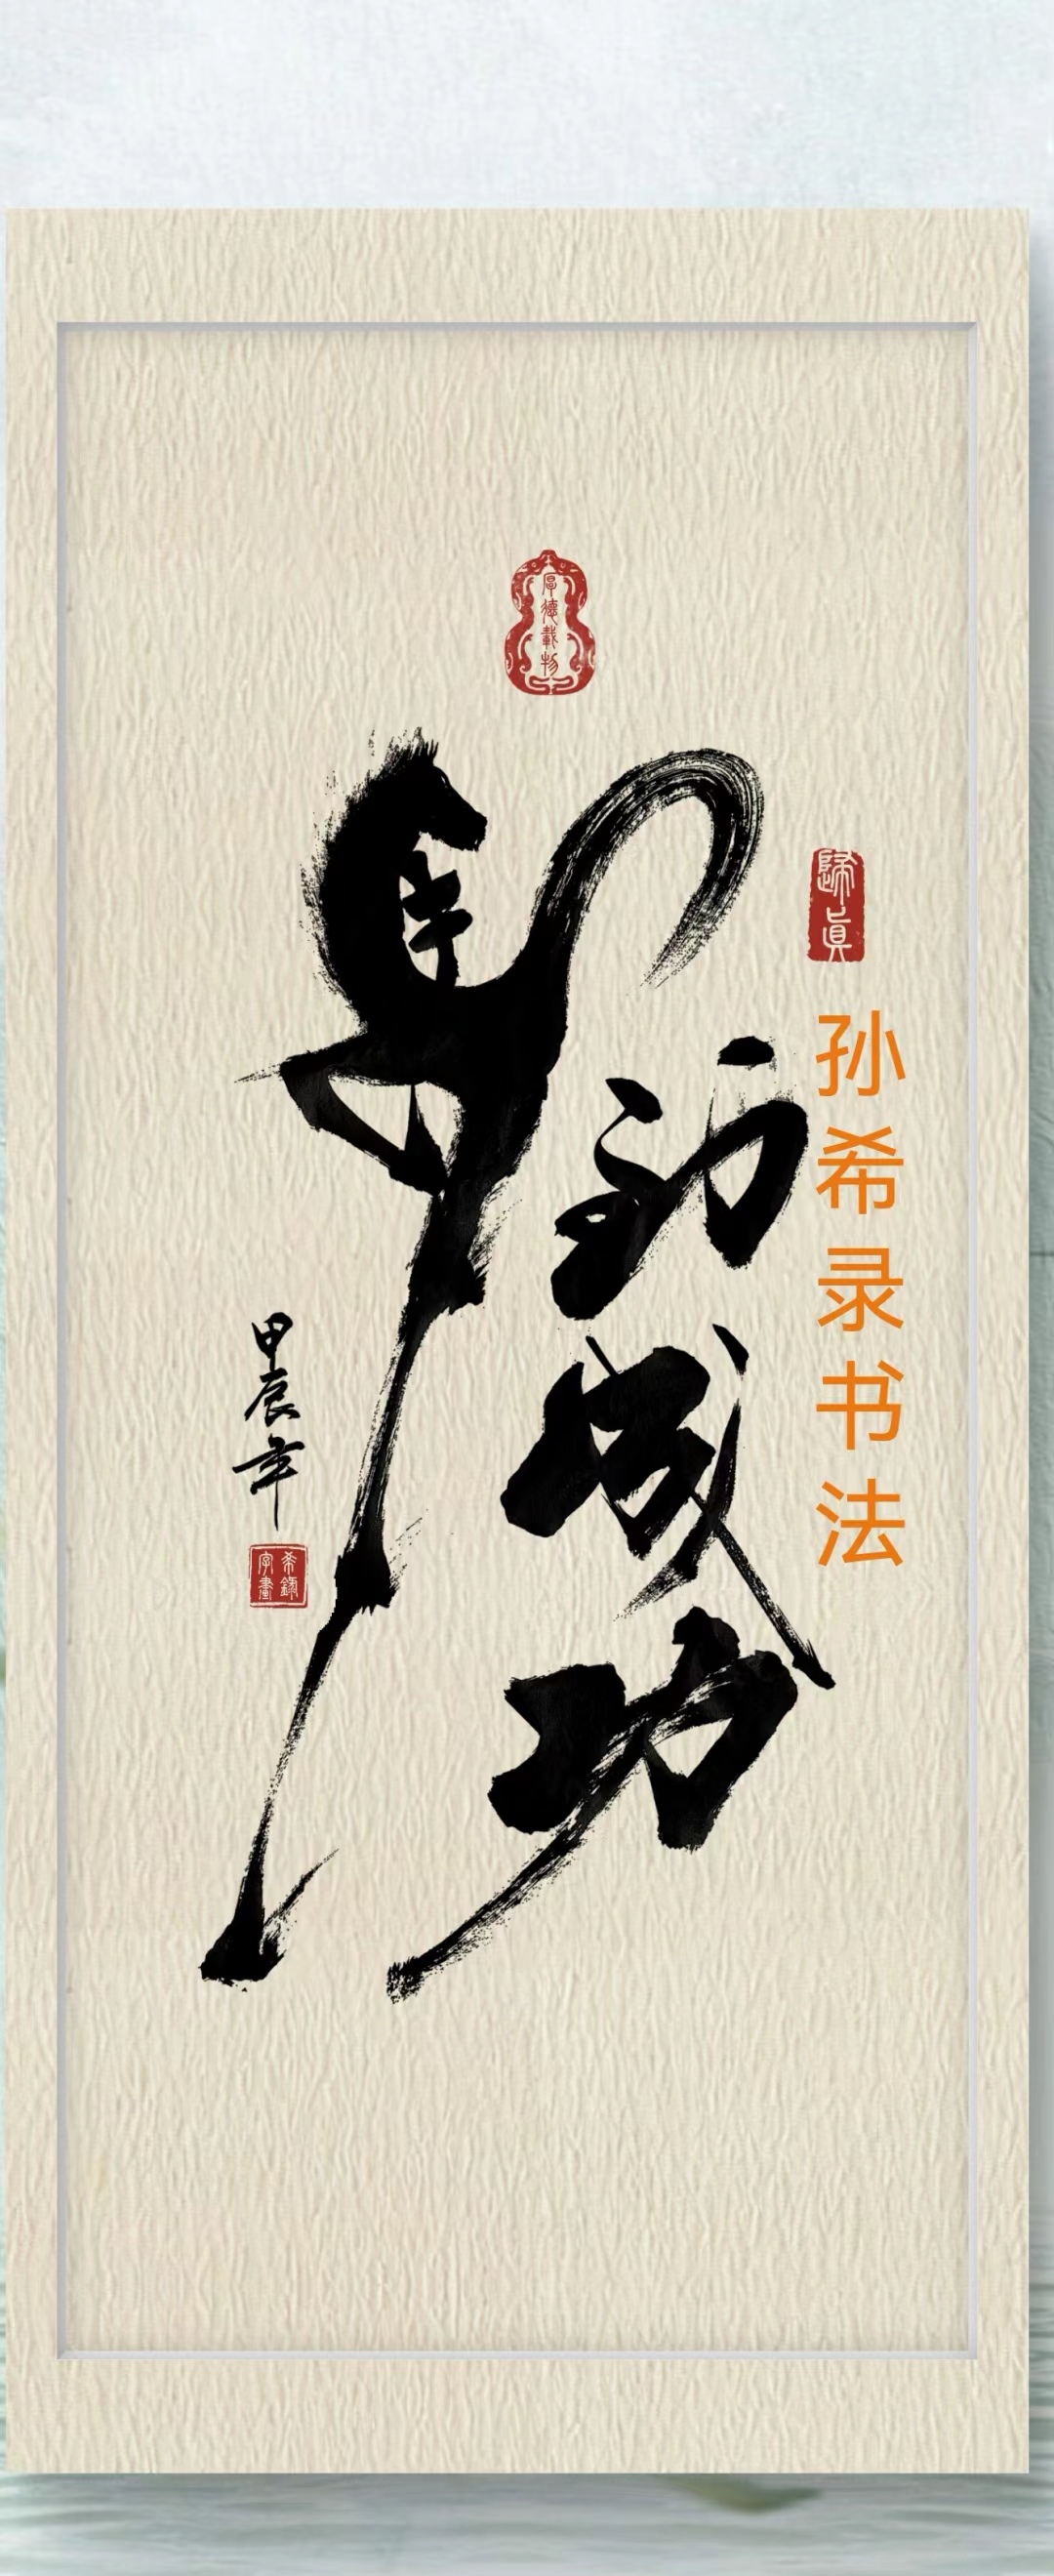 厚德載物
歸真
孙希录书法
馬到成功
甲辰年
希錄字畫